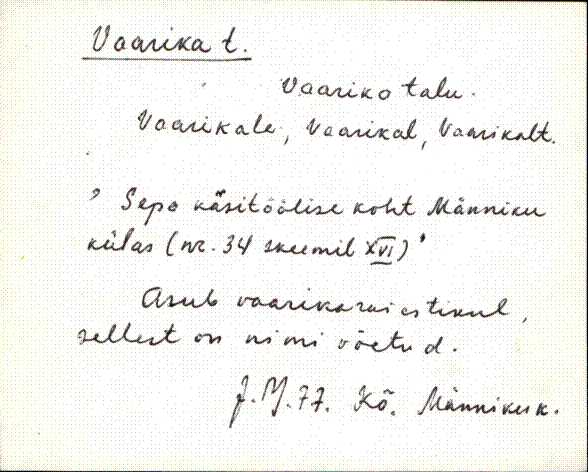 Vaarika t.
Vaariko talu.
Vaarikale, Vaarikal, Vaarikalt.
' Sepa käsitöölise koht Männiku
külas (nr. 34 skeemil XVI) '
Asub vaarikaraiestikul,
sellest on nimi võetud.
Kõ. Männiku k.